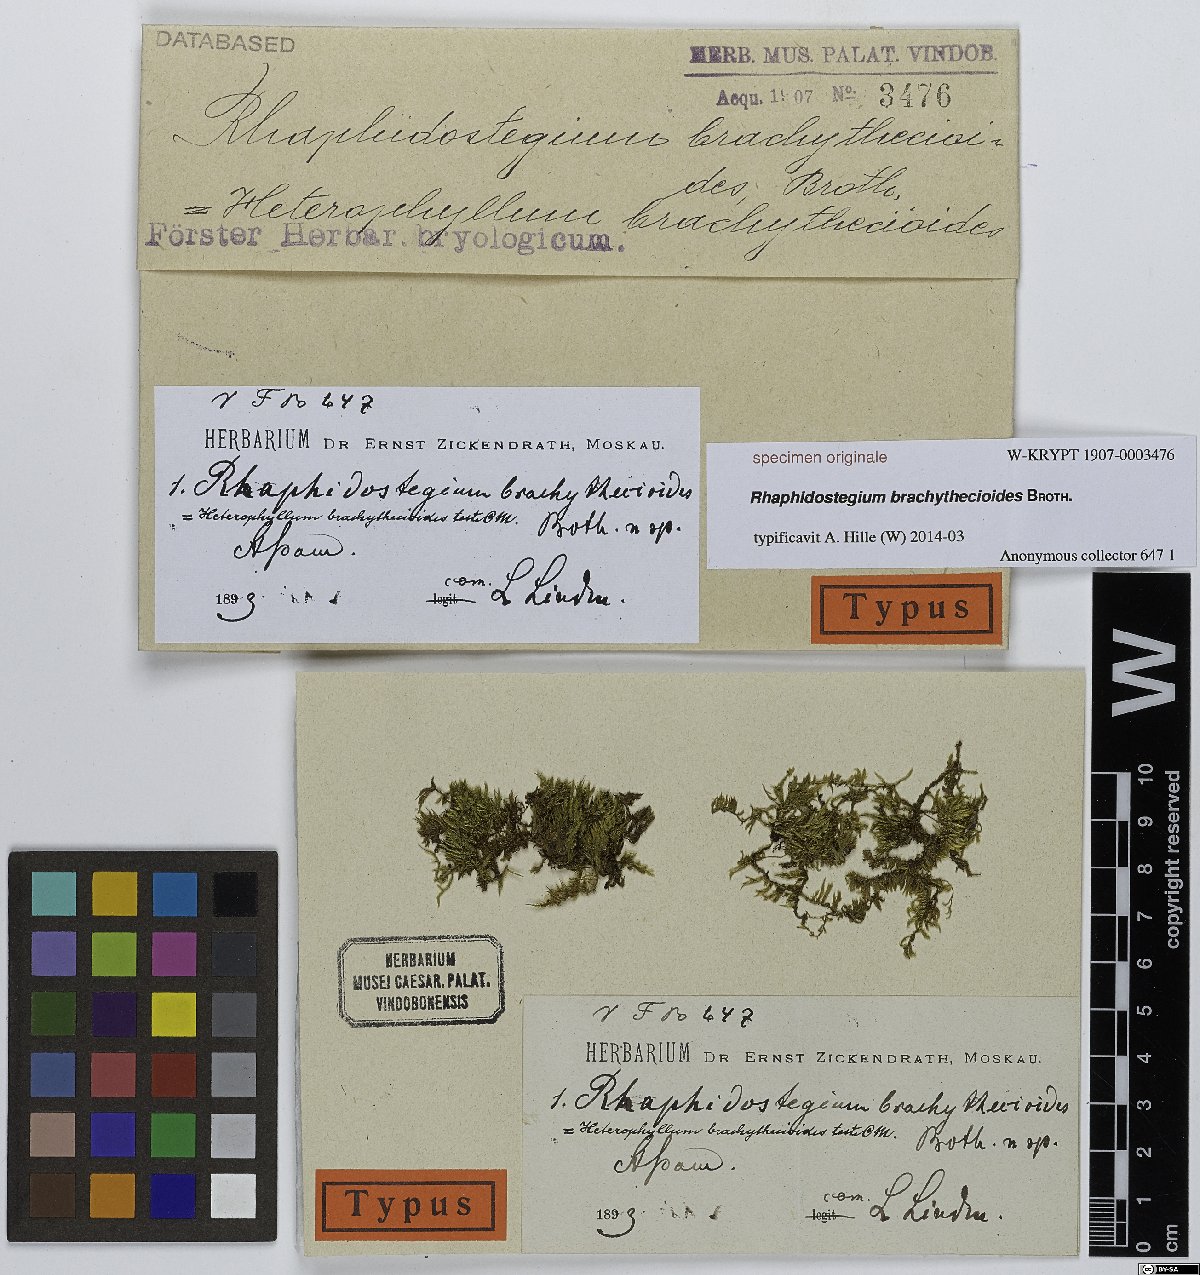 DATABASED
HERB. MUS. PALAT. VINDOB.
Acqu. 1907 No. 3476
Rhaphidostegium brachythecioi-
des, Broth.
= Heterophyllum brachythecioides
Förster Herbar. bryologicum.
HERBARIUM DR ERNST ZICKENDRATH, MOSKAU.
1. Rhaphidostegium brachythecioides
= Heterophyllum brachythecioides teste CM. Broth. n sp.
Assam.
1893 com. legit L Linden.
specimen originale W-KRYPT 1907-0003476
Rhaphidostegium brachythecioides BROTH.
typificavit A. Hille (W) 2014-03
Anonymous collector 647 1
Typus
HERBARIUM
MUSEI CAESAR. PALAT.
VINDOBONENSIS
HERBARIUM DR ERNST ZICKENDRATH, MOSKAU.
1. Rhaphidostegium brachythecioides
= Heterophyllum brachythecioides teste CM. Broth. n sp.
Assam.
1893 com. legit L Linden.
Typus
W
0 1 2 3 4 5 6 7 8 9 10
cm
copyright reserved
cc BY-SA